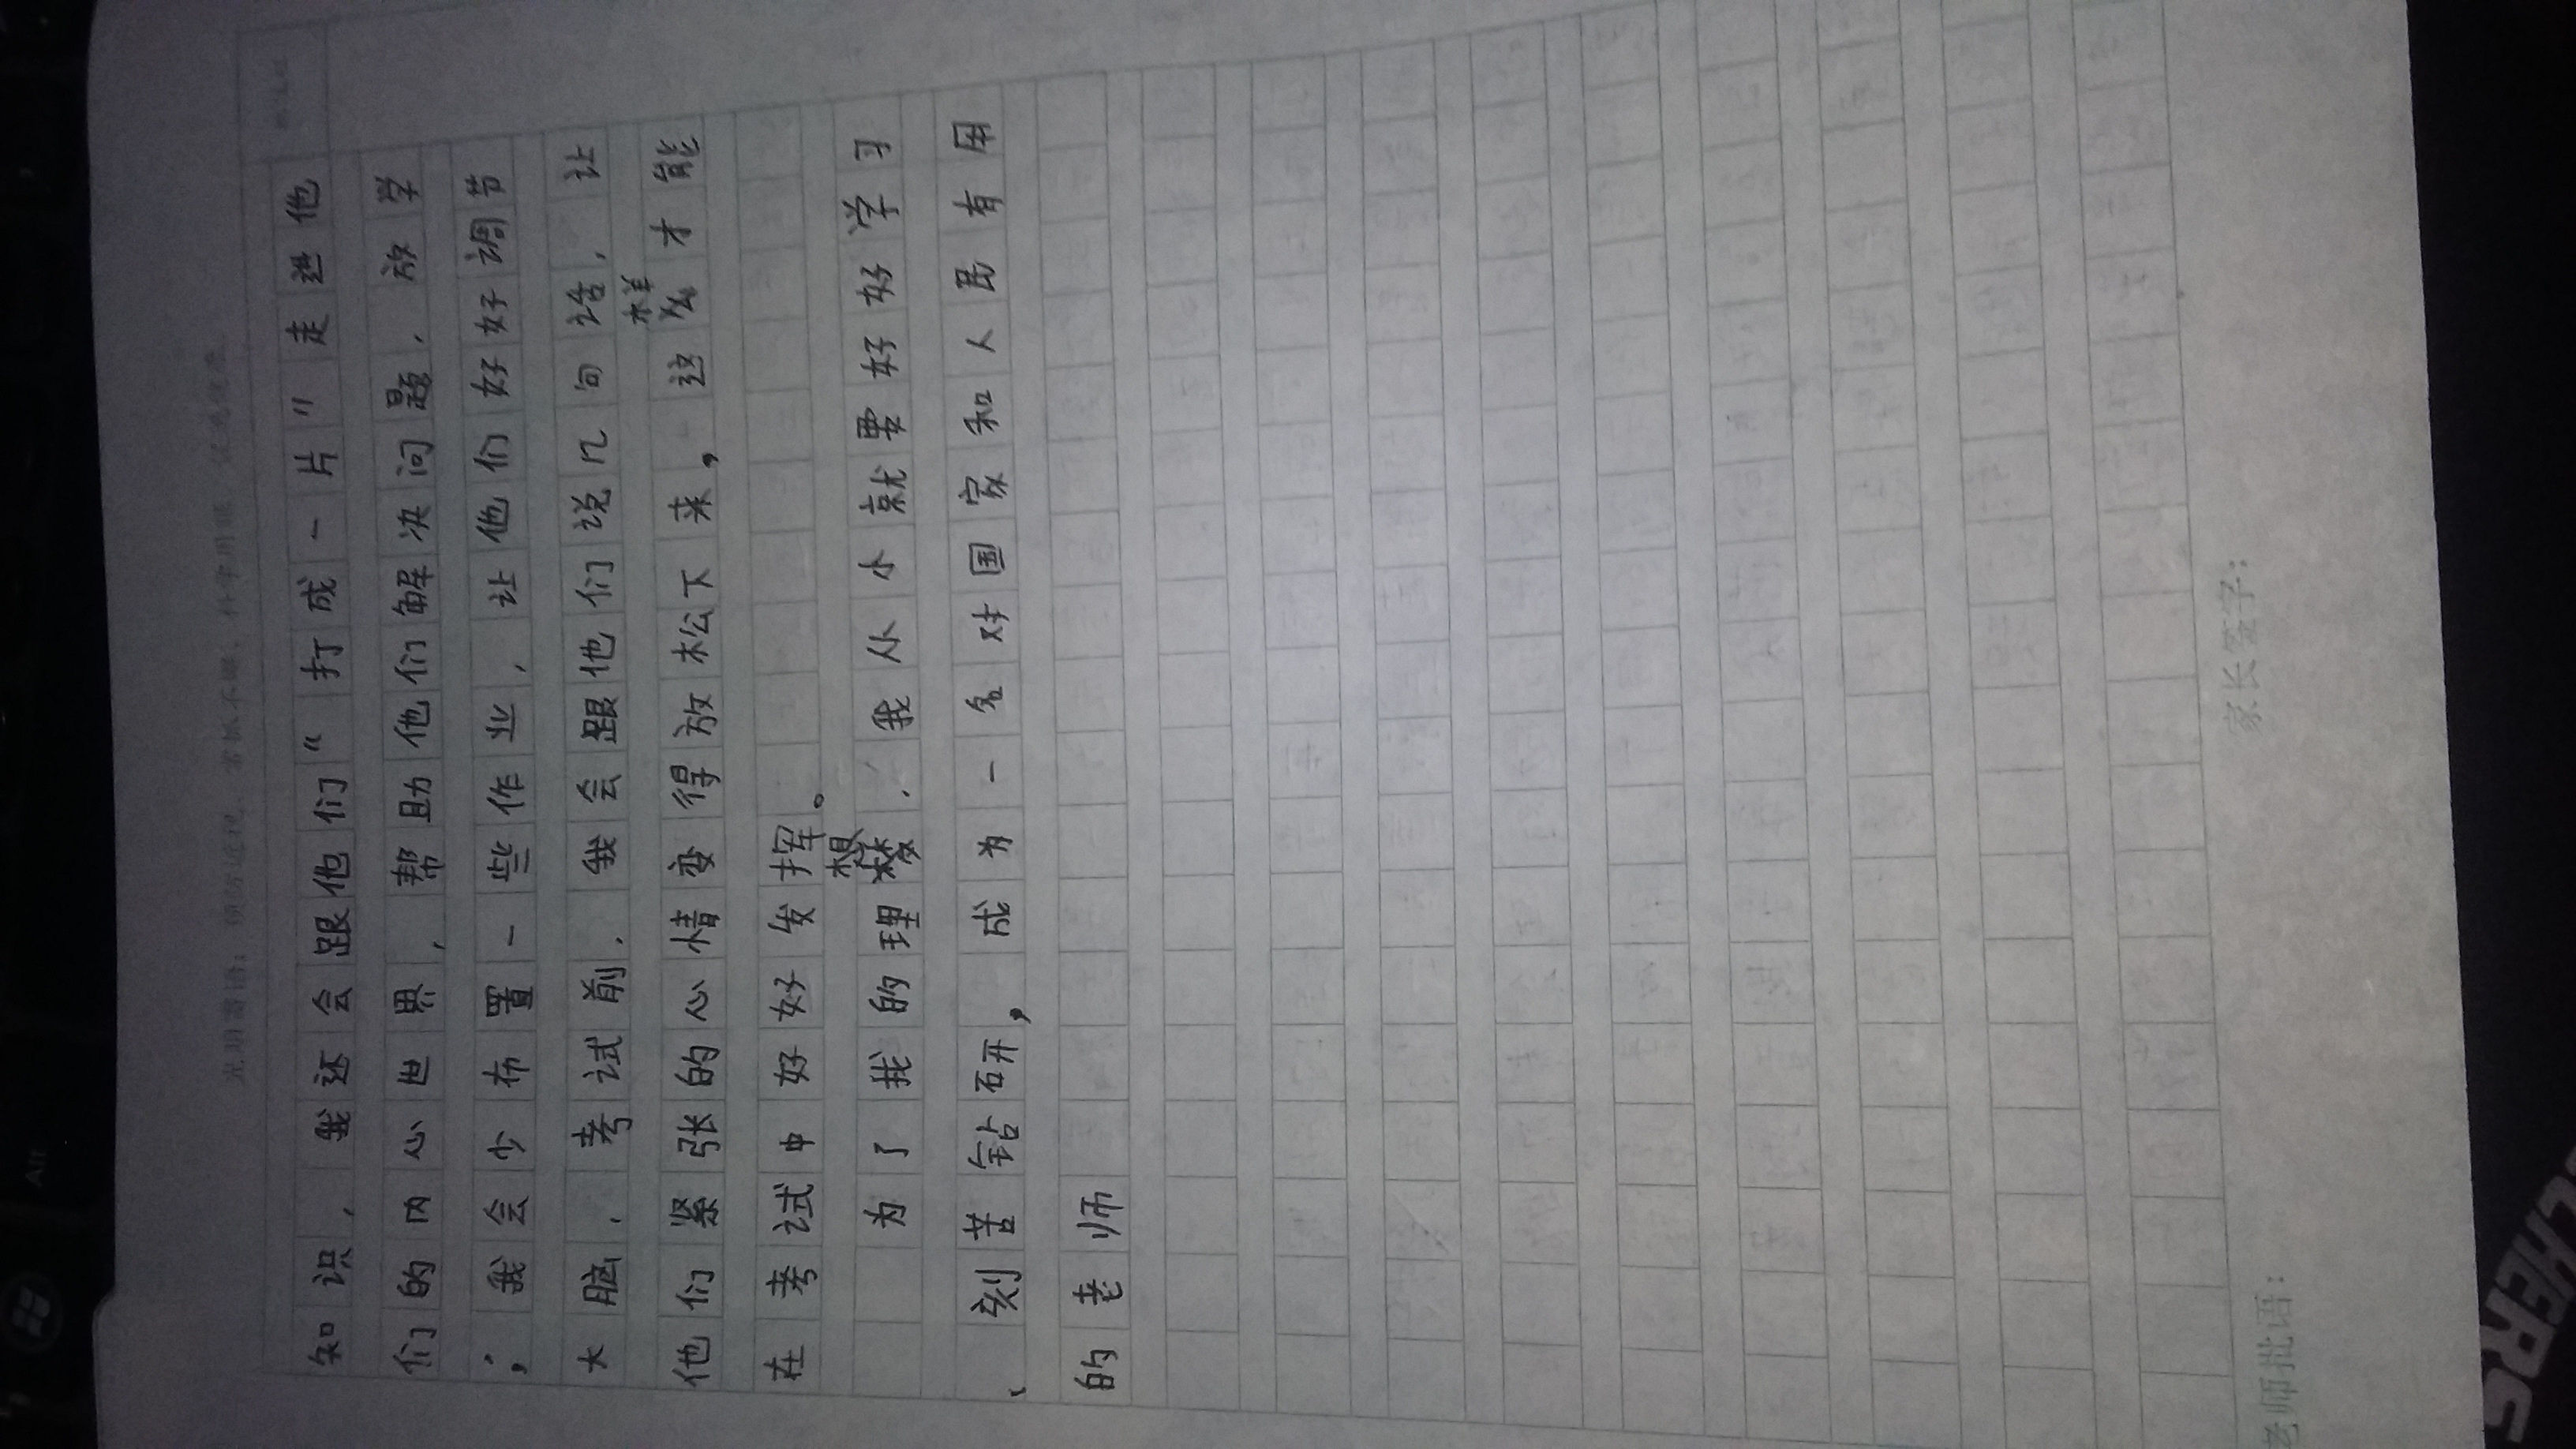 知识，我还会跟他们“打成一片”走进他
们的内心世界，帮助他们解决问题，放学
，我会少布置一些作业，让他们好好调节
大脑，考试前，我会跟他们说几句话，让
他们紧张的心情变得放松下来，这样才能
在考试中好好发挥。
为了我的理想，我从小就要好好学习
、刻苦钻研，成为一名对国家和人民有用
的老师
老师批语：
家长签字：
Alt